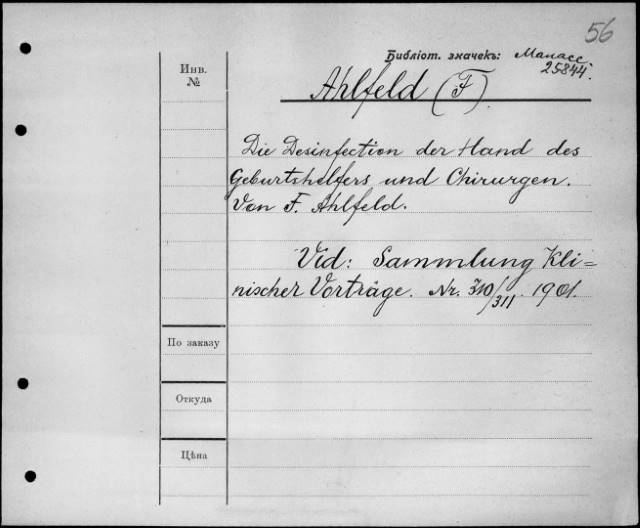 56
Библіот. значекъ: Манасс
25844.
Инв.
№
Ahlfeld (F).
Die Desinfection der Hand des
Geburtshelfers und Chirurgen.
Von F. Ahlfeld.
Vid: Sammlung Kli=
nischer Vorträge. Nr. 310/311. 1901.
По заказу
Откуда
Цѣна